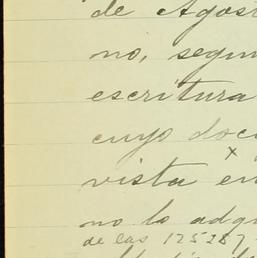 de Agost
no, segun
escritura
cuyo docu
x
vista en
no lo adqu
de las 125287